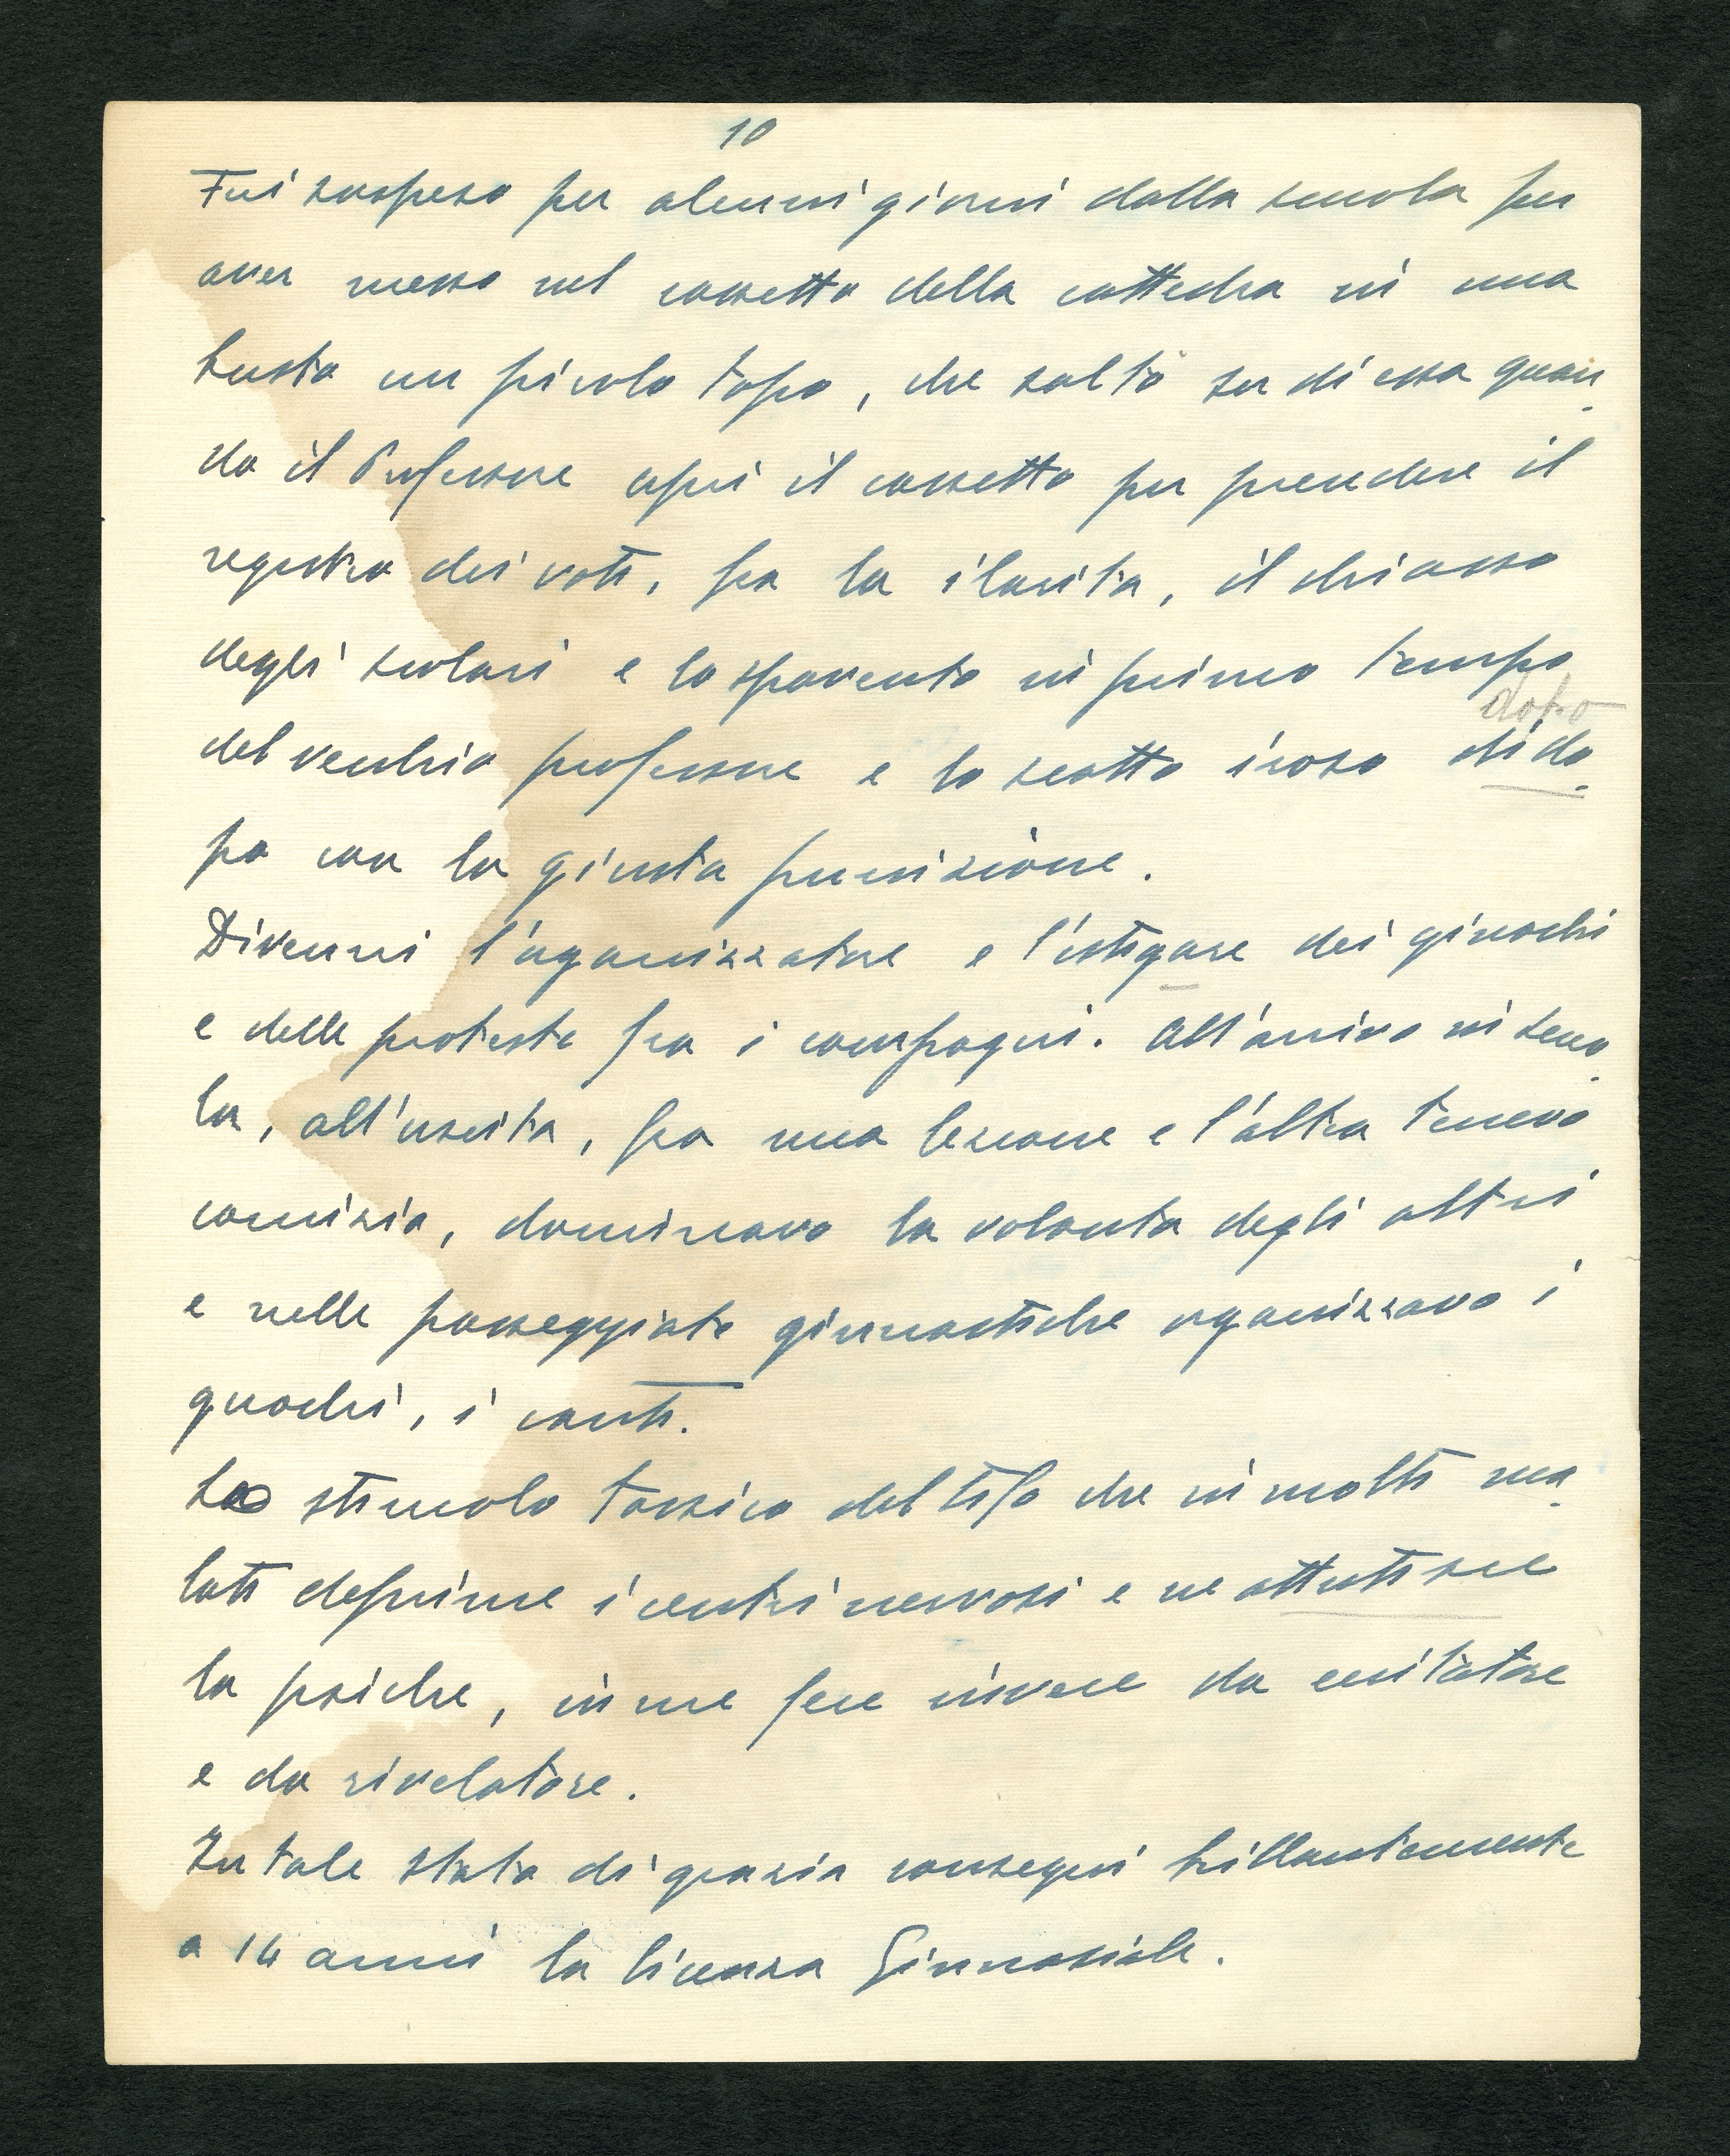 10
Fui sospeso per alcuni giorni dalla scuola per
aver messo nel cassetto della cattedra in una
busta un picolo topo, che saltò su di essa quan
do il Professore aprì il cassetto per prendere il
registro dei voti, fra la ilarita, il chiasso
degli scolari e lo spavento in primo tempo
dopo
del vecchio professore e lo scatto iroso di do
po con la giusta punizione.
Divenni l'organizzatore e l'istigare dei giuochi
e delle proteste fra i compagni. All'arrivo in scuo
la, all'uscita, fra una lezione e l'altra tenevo
comizio, dominavo la volonta degli altri
e nelle passeggiate ginnastiche organizzavo i
giuochi, i canti.
Lo stimolo tossico del tifo che in molti ma
lati deprime i centri nervosi e ne attutisce
la psiche, in me fece invece da eccitatore
e da rivelatore.
In tale stato di grazia conseguì brillantemente
a 14 anni la licenza Ginnasiale.